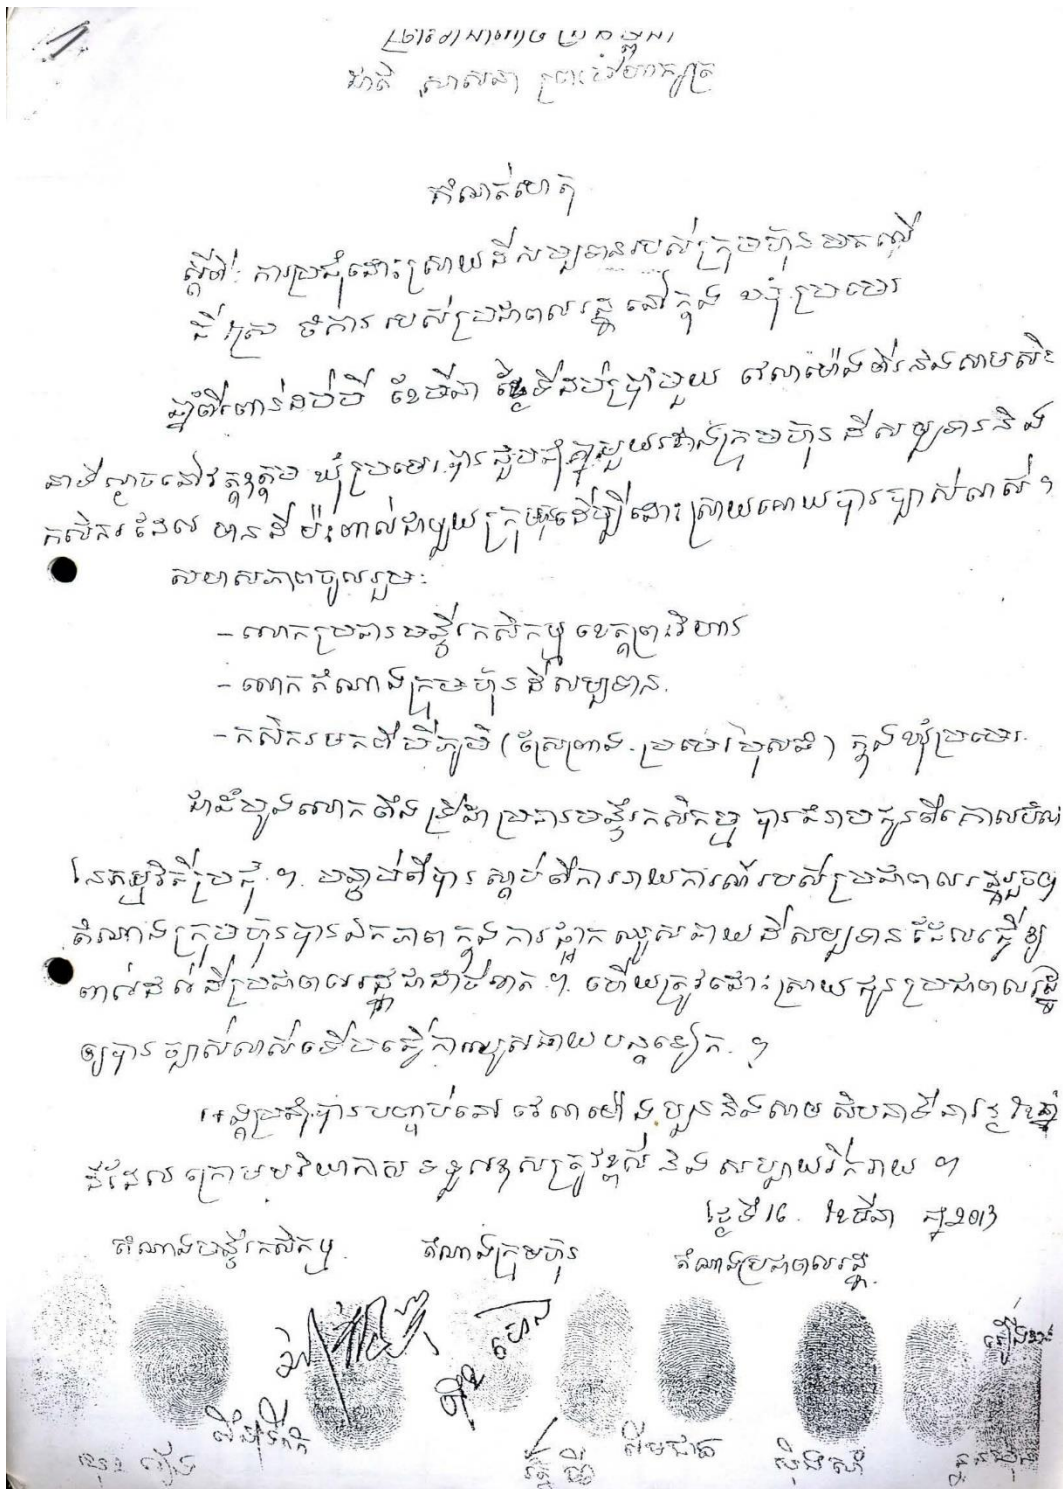 1
ព្រះរាជាណាចក្រកម្ពុជា
ជាតិ សាសនា ព្រះមហាក្សត្រ
កំណត់ហេតុ
ស្តីពី: ការប្រជុំដោះស្រាយដីសម្បទានរបស់ក្រុមហ៊ុនមកលើ
ដី ស្រែ ចំការ របស់ប្រជាពលរដ្ឋ នៅក្នុង ឃុំប្រមេរ
ឆ្នាំពីរពាន់ដប់បី ខែមីនា ថ្ងៃទីដប់ប្រាំមួយ វេលាម៉ោងពីរនិងសាមសិប
នាទីល្ងាចនៅវត្ត ឃុំប្រមេរ បានជួបជុំគ្នាមួយរវាងក្រុមហ៊ុន ដីសម្បទាននិង
កសិករដែល មានដី ប៉ះពាល់ជាមួយ ក្រុមហ៊ុនដើម្បីដោះស្រាយអោយបានច្បាស់លាស់។
សមាសភាពចូលរួម:
- លោកប្រធានមន្ទីរកសិកម្ម ខេត្តព្រះវិហារ
- លោកតំណាងក្រុមហ៊ុនដីសម្បទាន.
- កសិករមកពីបីភូមិ ( ប្រមេរ ) ក្នុងឃុំប្រមេរ.
ជាដំបូងលោក ប្រធានមន្ទីរកសិកម្ម បានជំរាបជូនពីគោលបំណង
នៃកម្មវិធីប្រជុំ ។ បន្ទាប់ពីបាន ស្តាប់ពីការរាយការណ៍របស់ប្រជាពលរដ្ឋរួចមក
តំណាងក្រុមហ៊ុនបានឯកភាពក្នុងការផ្អាកឈូសឆាយដីសម្បទាន ដែលធ្វើឲ្យ
ពាល់ដល់ដីប្រជាពលរដ្ឋជាដាច់ខាត ។ ហើយត្រូវដោះស្រាយជូនប្រជាពលរដ្ឋ
ឲ្យបានច្បាស់លាស់ទើបធ្វើការឈូសឆាយបន្តទៀត ។
អង្គប្រជុំបានបញ្ចប់នៅ វេលាម៉ោងបួននិងសាមសិបនាទីនាថ្ងៃខែឆ្នាំ
ដដែល ក្រោមបរិយាកាស និង សប្បាយរីករាយ ។
ថ្ងៃទី 16 ខែមីនា ឆ្នាំ 2013
តំណាងមន្ទីរកសិកម្ម តំណាងក្រុមហ៊ុន តំណាងប្រជាពលរដ្ឋ